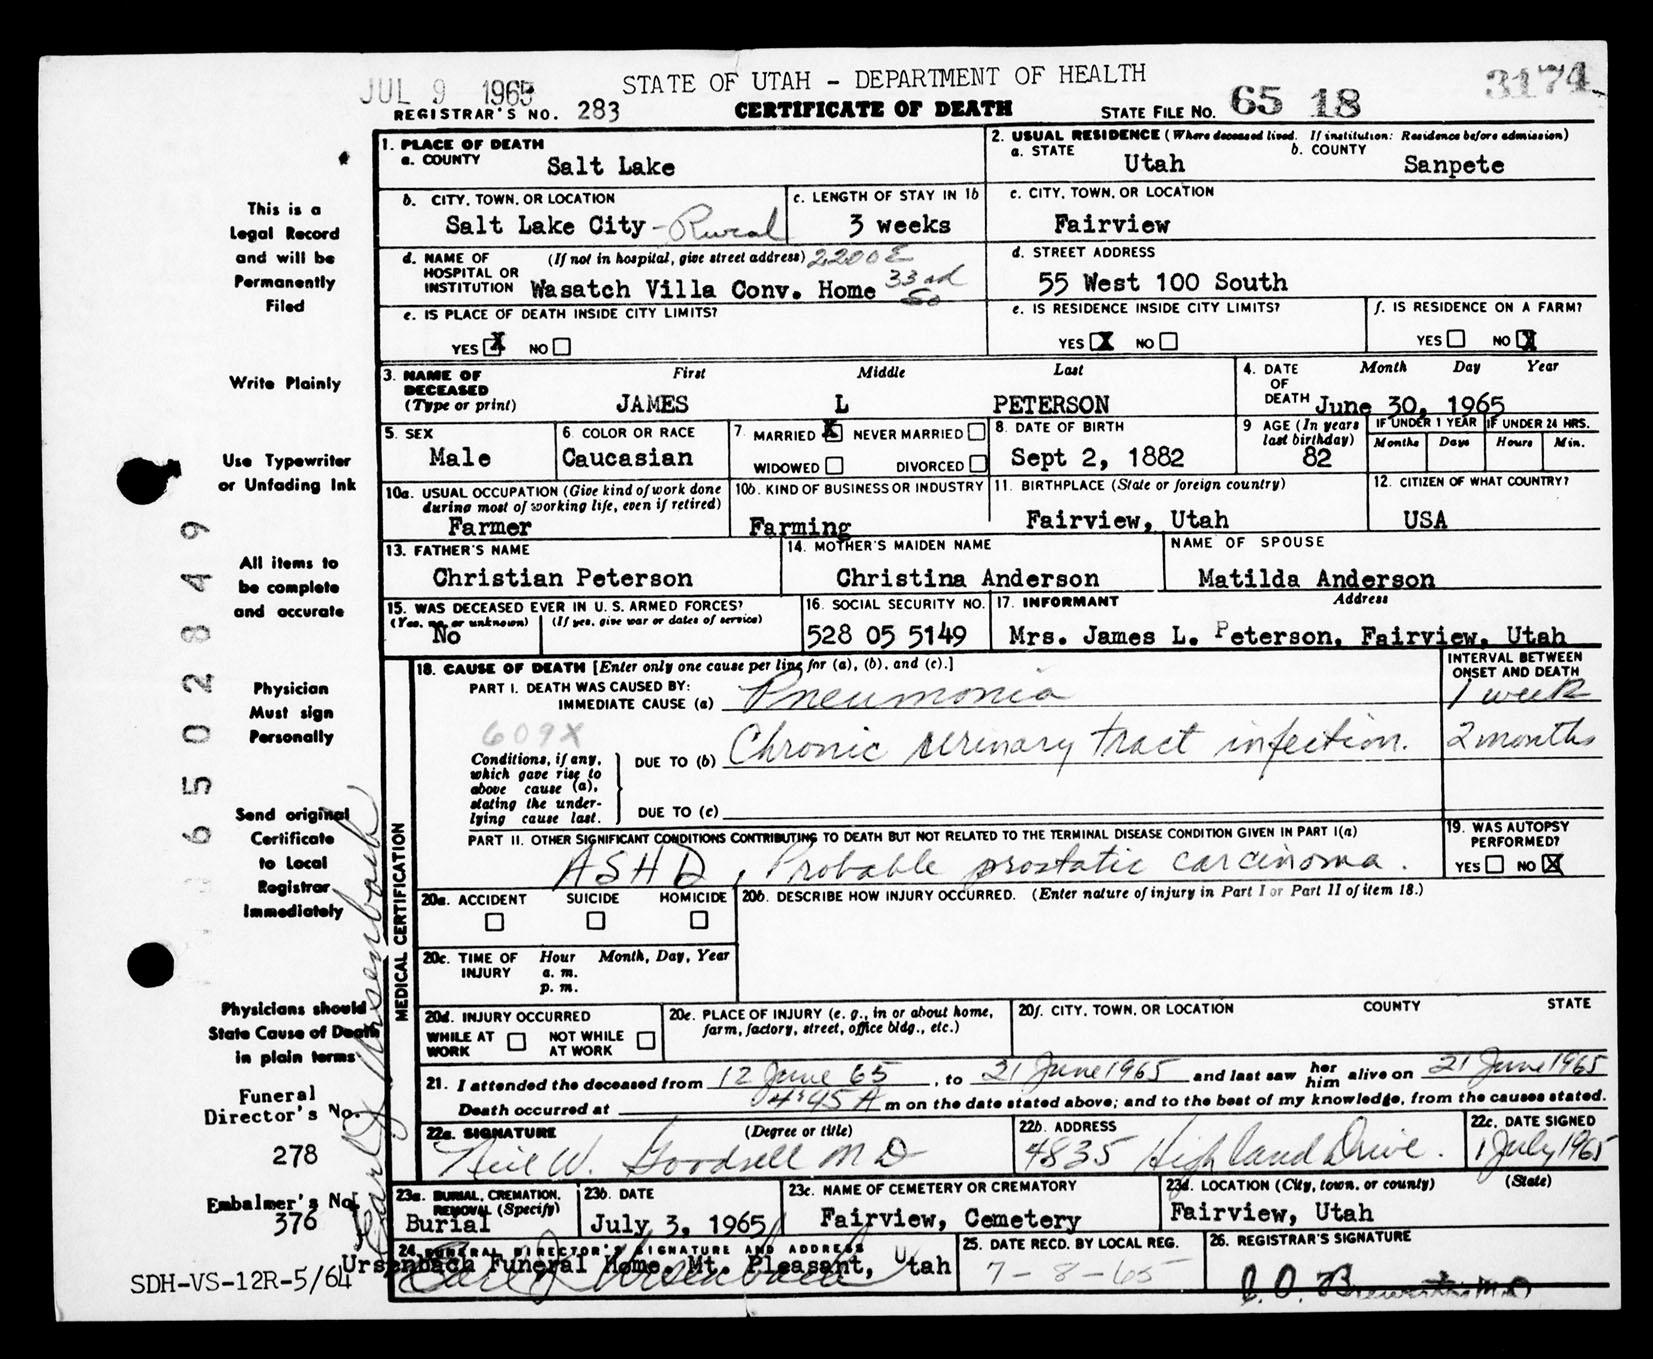 JUL 9 1965
STATE OF UTAH - DEPARTMENT OF HEALTH
3174
REGISTRAR'S NO. 283 CERTIFICATE OF DEATH STATE FILE NO. 65 18
1. PLACE OF DEATH
a. COUNTY Salt Lake
2. USUAL RESIDENCE (Where deceased lived. If institution: Residence before admission)
a. STATE Utah b. COUNTY Sanpete
b. CITY, TOWN, OR LOCATION Salt Lake City - Rural
c. LENGTH OF STAY IN 1b 3 weeks
c. CITY, TOWN, OR LOCATION Fairview
d. NAME OF HOSPITAL OR INSTITUTION (If not in hospital, give street address) 2200 E
Wasatch Villa Conv. Home 33rd So
d. STREET ADDRESS 55 West 100 South
e. IS PLACE OF DEATH INSIDE CITY LIMITS?
YES X NO
e. IS RESIDENCE INSIDE CITY LIMITS?
YES X NO
f. IS RESIDENCE ON A FARM?
YES NO X
3. NAME OF DECEASED (Type or print) First Middle Last
JAMES L PETERSON
4. DATE OF DEATH Month Day Year
June 30, 1965
5. SEX Male
6. COLOR OR RACE Caucasian
7. MARRIED X NEVER MARRIED
WIDOWED DIVORCED
8. DATE OF BIRTH Sept 2, 1882
9 AGE (In years last birthday) 82
IF UNDER 1 YEAR Months Days
IF UNDER 24 HRS. Hours Min.
10a. USUAL OCCUPATION (Give kind of work done during most of working life, even if retired)
Farmer
10b. KIND OF BUSINESS OR INDUSTRY
Farming
11. BIRTHPLACE (State or foreign country)
Fairview, Utah
12. CITIZEN OF WHAT COUNTRY?
USA
13. FATHER'S NAME
Christian Peterson
14. MOTHER'S MAIDEN NAME
Christina Anderson
NAME OF SPOUSE
Matilda Anderson
15. WAS DECEASED EVER IN U. S. ARMED FORCES?
(Yes, no, or unknown) (If yes, give war or dates of service)
No
16. SOCIAL SECURITY NO.
528 05 5149
17. INFORMANT Address
Mrs. James L. Peterson, Fairview, Utah
MEDICAL CERTIFICATION
18. CAUSE OF DEATH [Enter only one cause per line for (a), (b), and (c).]
INTERVAL BETWEEN ONSET AND DEATH
PART I. DEATH WAS CAUSED BY:
IMMEDIATE CAUSE (a) Pneumonia 1 week
609X
Conditions, if any, which gave rise to above cause (a), stating the underlying cause last.
DUE TO (b) Chronic urinary tract infection. 2 months
DUE TO (c)
PART II. OTHER SIGNIFICANT CONDITIONS CONTRIBUTING TO DEATH BUT NOT RELATED TO THE TERMINAL DISEASE CONDITION GIVEN IN PART I(a)
ASHD, Probable prostatic carcinoma.
19. WAS AUTOPSY PERFORMED?
YES NO X
20a. ACCIDENT SUICIDE HOMICIDE
20b. DESCRIBE HOW INJURY OCCURRED. (Enter nature of injury in Part I or Part II of item 18.)
20c. TIME OF INJURY Hour Month, Day, Year
a. m.
p. m.
20d. INJURY OCCURRED
WHILE AT WORK NOT WHILE AT WORK
20e. PLACE OF INJURY (e. g., in or about home, farm, factory, street, office bldg., etc.)
20f. CITY, TOWN, OR LOCATION COUNTY STATE
21. I attended the deceased from 12 June 65, to 21 June 1965 and last saw her him alive on 21 June 1965
Death occurred at 4:45 A m on the date stated above; and to the best of my knowledge, from the causes stated.
22a. SIGNATURE (Degree or title)
Neil W. Goodsell MD
22b. ADDRESS
4835 Highland Drive.
22c. DATE SIGNED
1 July 1965
23a. BURIAL, CREMATION, REMOVAL (Specify)
Burial
23b. DATE
July 3, 1965
23c. NAME OF CEMETERY OR CREMATORY
Fairview, Cemetery
23d. LOCATION (City, town, or county) (State)
Fairview, Utah
24. FUNERAL DIRECTOR'S SIGNATURE AND ADDRESS
Ursenbach Funeral Home, Mt. Pleasant, Utah
Earl J Ursenbach
25. DATE RECD. BY LOCAL REG.
7-8-65
26. REGISTRAR'S SIGNATURE
This is a
Legal Record
and will be
Permanently
Filed
Write Plainly
Use Typewriter
or Unfading Ink
All items to
be complete
and accurate
Physician
Must sign
Personally
Send original
Certificate
to Local
Registrar
Immediately
Physicians should
State Cause of Death
in plain terms
Funeral
Director's No.
278
Embalmer's No.
376
SDH-VS-12R-5/64
36502849
Earl J Ursenbach